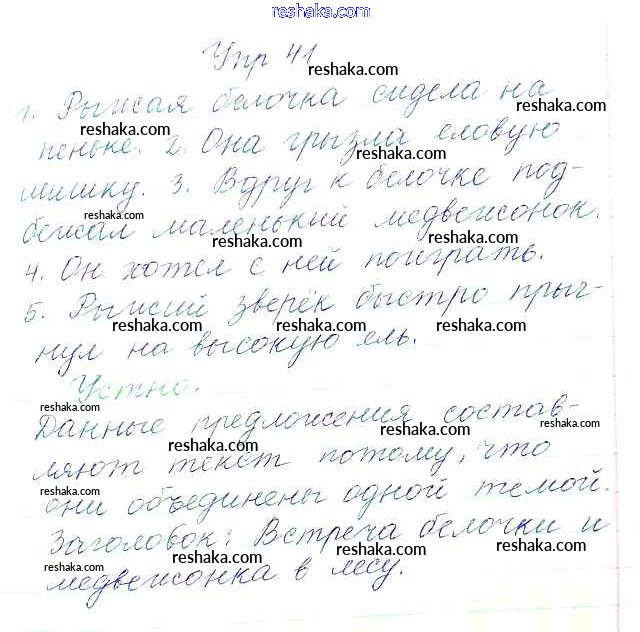 reshaka.com
Упр 41
reshaka.com
1. Рыжая белочка сидела на
reshaka.com reshaka.com
пеньке. 2. Она грызла еловую
reshaka.com reshaka.com
шишку. 3. Вдруг к белочке под-
reshaka.com reshaka.com reshaka.com
бежал маленький медвежонок.
reshaka.com reshaka.com
4. Он хотел с ней поиграть.
reshaka.com reshaka.com reshaka.com
5. Рыжий зверёк быстро прыг-
reshaka.com reshaka.com reshaka.com
нул на высокую ель.
Устно.
reshaka.com
Данные предложения состав-
reshaka.com reshaka.com reshaka.com
ляют текст потому, что
reshaka.com reshaka.com reshaka.com
они объединены одной темой.
Заголовок: Встреча белочки и
reshaka.com reshaka.com reshaka.com
медвежонка в лесу.